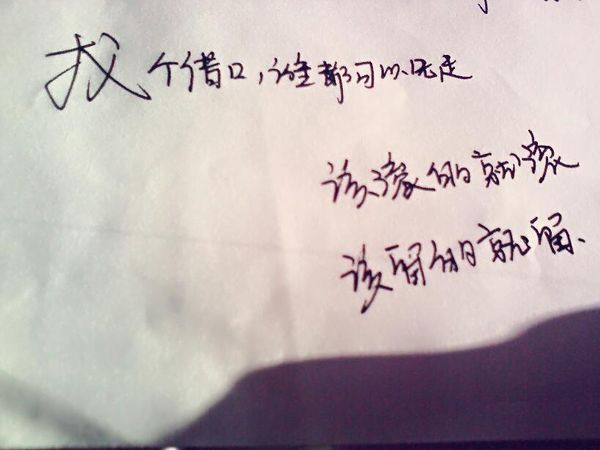 找个借口,谁都可以先走
该滚的就滚
该留的就留.